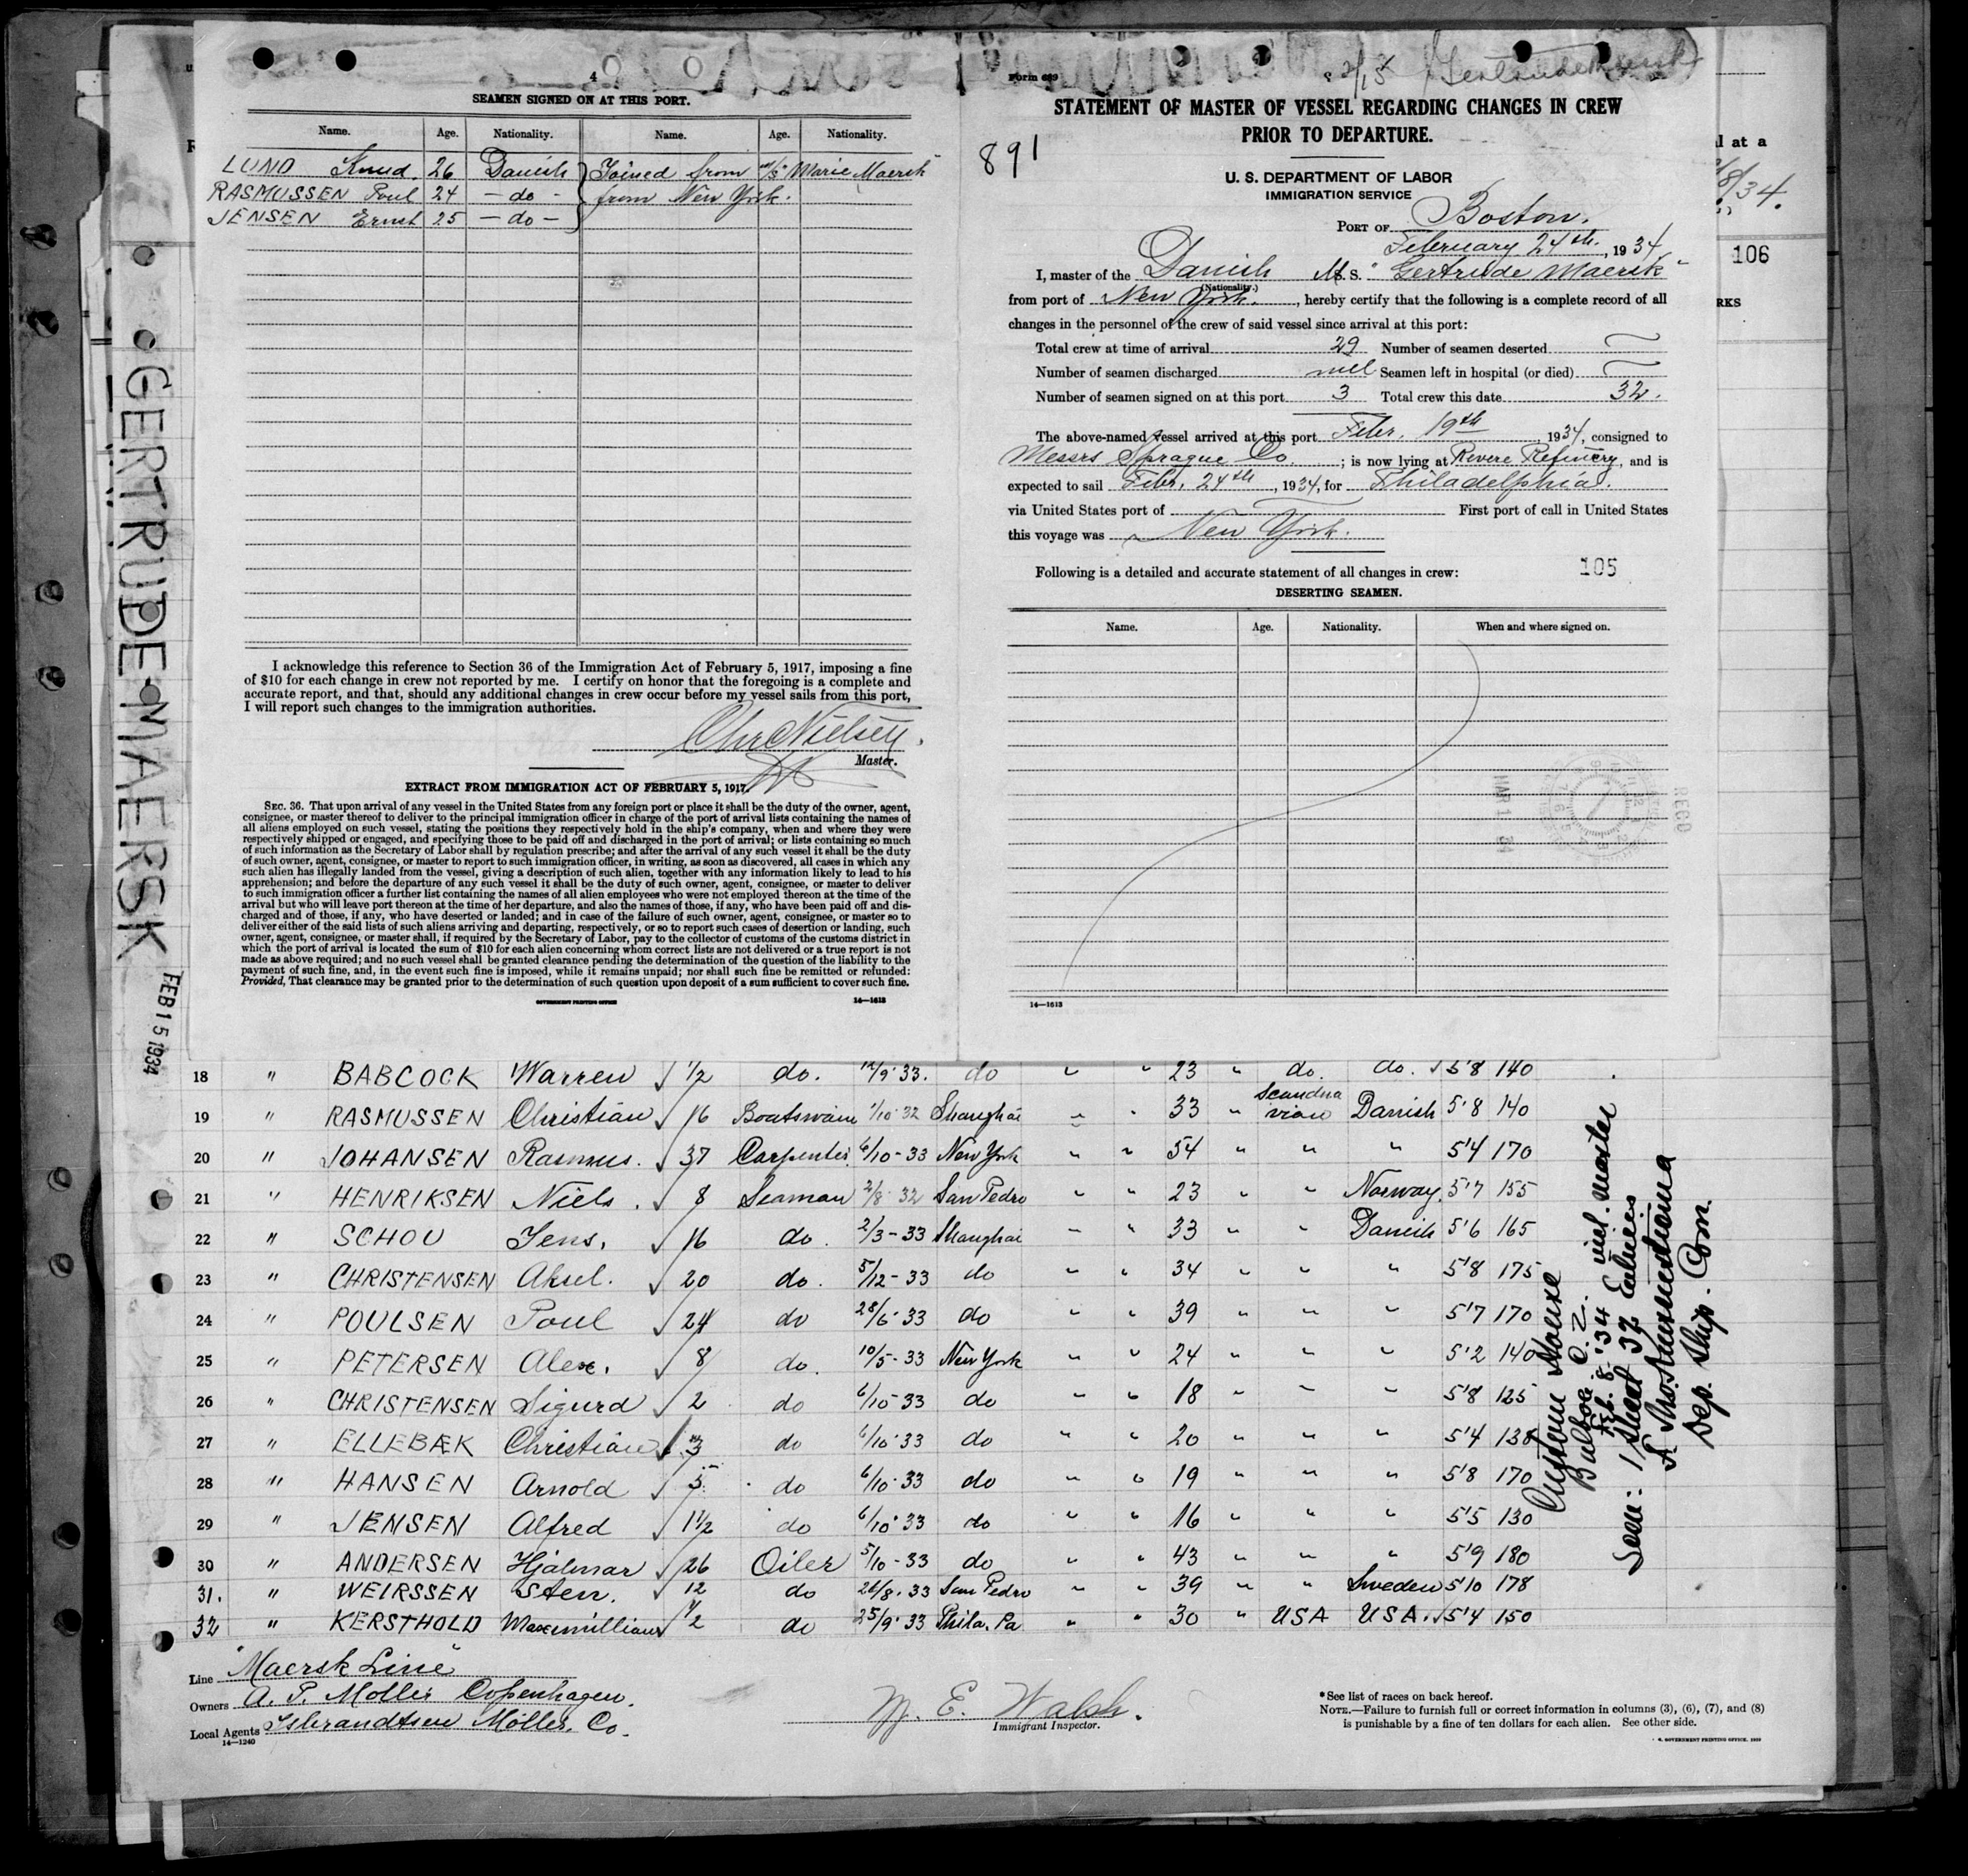 4
SEAMEN SIGNED ON AT THIS PORT.
Name. Age. Nationality. Name. Age. Nationality.
LUND Knud. 26 Danish Joined from M/S "Marie Maersk"
RASMUSSEN Poul 24 - do - from New York.
JENSEN Ernst 25 - do -
I acknowledge this reference to Section 36 of the Immigration Act of February 5, 1917, imposing a fine
of $10 for each change in crew not reported by me. I certify on honor that the foregoing is a complete and
accurate report, and that, should any additional changes in crew occur before my vessel sails from this port,
I will report such changes to the immigration authorities.
Chr Nielsen.
Master.
EXTRACT FROM IMMIGRATION ACT OF FEBRUARY 5, 1917.
SEC. 36. That upon arrival of any vessel in the United States from any foreign port or place it shall be the duty of the owner, agent,
consignee, or master thereof to deliver to the principal immigration officer in charge of the port of arrival lists containing the names of
all aliens employed on such vessel, stating the positions they respectively hold in the ship's company, when and where they were
respectively shipped or engaged, and specifying those to be paid off and discharged in the port of arrival; or lists containing so much
of such information as the Secretary of Labor shall by regulation prescribe; and after the arrival of any such vessel it shall be the duty
of such owner, agent, consignee, or master to report to such immigration officer, in writing, as soon as discovered, all cases in which any
such alien has illegally landed from the vessel, giving a description of such alien, together with any information likely to lead to his
apprehension; and before the departure of any such vessel it shall be the duty of such owner, agent, consignee, or master to deliver
to such immigration officer a further list containing the names of all alien employees who were not employed thereon at the time of the
arrival but who will leave port thereon at the time of her departure, and also the names of those, if any, who have been paid off and dis-
charged and of those, if any, who have deserted or landed; and in case of the failure of such owner, agent, consignee, or master so to
deliver either of the said lists of such aliens arriving and departing, respectively, or so to report such cases of desertion or landing, such
owner, agent, consignee, or master shall, if required by the Secretary of Labor, pay to the collector of customs of the customs district in
which the port of arrival is located the sum of $10 for each alien concerning whom correct lists are not delivered or a true report is not
made as above required; and no such vessel shall be granted clearance pending the determination of the question of the liability to the
payment of such fine, and, in the event such fine is imposed, while it remains unpaid; nor shall such fine be remitted or refunded:
Provided, That clearance may be granted prior to the determination of such question upon deposit of a sum sufficient to cover such fine.
GOVERNMENT PRINTING OFFICE 14—1613
Form 689
2/15 Gertrude Maersk
STATEMENT OF MASTER OF VESSEL REGARDING CHANGES IN CREW
PRIOR TO DEPARTURE.
891
U. S. DEPARTMENT OF LABOR
IMMIGRATION SERVICE
PORT OF Boston.
February 24th., 1934
I, master of the Danish M. S. "Gertrude Maersk"
(Nationality.)
from port of New York., hereby certify that the following is a complete record of all
changes in the personnel of the crew of said vessel since arrival at this port:
Total crew at time of arrival 29 Number of seamen deserted
Number of seamen discharged Seamen left in hospital (or died)
Number of seamen signed on at this port 3 Total crew this date 32.
The above-named vessel arrived at this port Febr. 19th, 1934, consigned to
Messrs Sprague Co. ; is now lying at Revere Refinery, and is
expected to sail Febr. 24th, 1934, for Philadelphia.
via United States port of First port of call in United States
this voyage was New York.
Following is a detailed and accurate statement of all changes in crew: 105
DESERTING SEAMEN.
Name. Age. Nationality. When and where signed on.
RECD
MAR 1 34
14—1613
l at a
8/34.
106
RKS
GERTRUDE MAERSK
FEB 15 1934
18 " BABCOCK Warren 1/2 do. 12/9 33. do " " 23 " do. do. 5'8 140
19 " RASMUSSEN Christian 16 Boatswain 1/10 32 Shanghai " " 33 " Scandinavian Danish 5'8 140
20 " JOHANSEN Rasmus. 37 Carpenter. 6/10-33 New York " " 54 " " " 5'4 170
21 " HENRIKSEN Niels. 8 Seaman 2/8 32 San Pedro " " 23 " " Norway. 5'7 155
22 " SCHOU Jens. 16 do. 2/3-33 Shanghai " " 33 " " Danish 5'6 165
23 " CHRISTENSEN Aksel. 20 do. 5/12-33 do " " 34 " " " 5'8 175
24 " POULSEN Poul 24 do 28/6-33 do " " 39 " " " 5'7 170
25 " PETERSEN Alex. 8 do. 10/5-33 New York " " 24 " " " 5'2 140
26 " CHRISTENSEN Sigurd 2 do 6/10-33 do " " 18 " " " 5'8 125
27 " ELLEBÆK Christian 3 do 6/10-33 do " " 20 " " " 5'4 138
28 " HANSEN Arnold 5 do 6/10-33 do " " 19 " " " 5'8 170
29 " JENSEN Alfred 1 1/2 do 6/10-33 do " " 16 " " " 5'5 130
30 " ANDERSEN Hjalmar 26 Oiler 5/10-33 do " " 43 " " " 5'9 180
31. " WEIRSSEN Sten. 12 do 26/8.33 San Pedro " " 39 " " Sweden 5'10 178
32 " KERSTHOLD Maxemillian 1/2 do 25/9-33 Phila. Pa " " 30 " USA USA. 5'4 150
Custom House
Balboa C. Z.
Feb. 8. '34 incl. master
Seen: 1 sheet 32 Entries
Dep. Ship. Com.
Line "Maersk Line"
Owners A. P. Moller Copenhagen.
Local Agents Isbrandtsen Moller. Co.
14—1240
M. E. Walsh.
Immigrant Inspector.
*See list of races on back hereof.
NOTE.—Failure to furnish full or correct information in columns (3), (6), (7), and (8)
is punishable by a fine of ten dollars for each alien. See other side.
GOVERNMENT PRINTING OFFICE